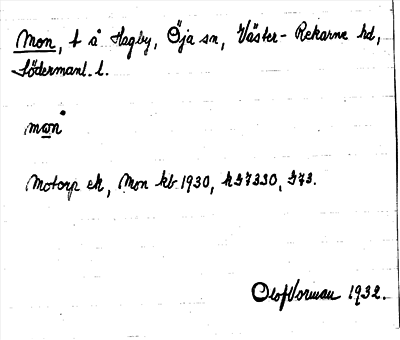 Mon, t å Hagby, Öja sn, Väster-Rekarne hd,
Södermanl. l.
mon
Motorp ek, Mon kb 1930, k I7330, I73.
Olof Vorman 1932.